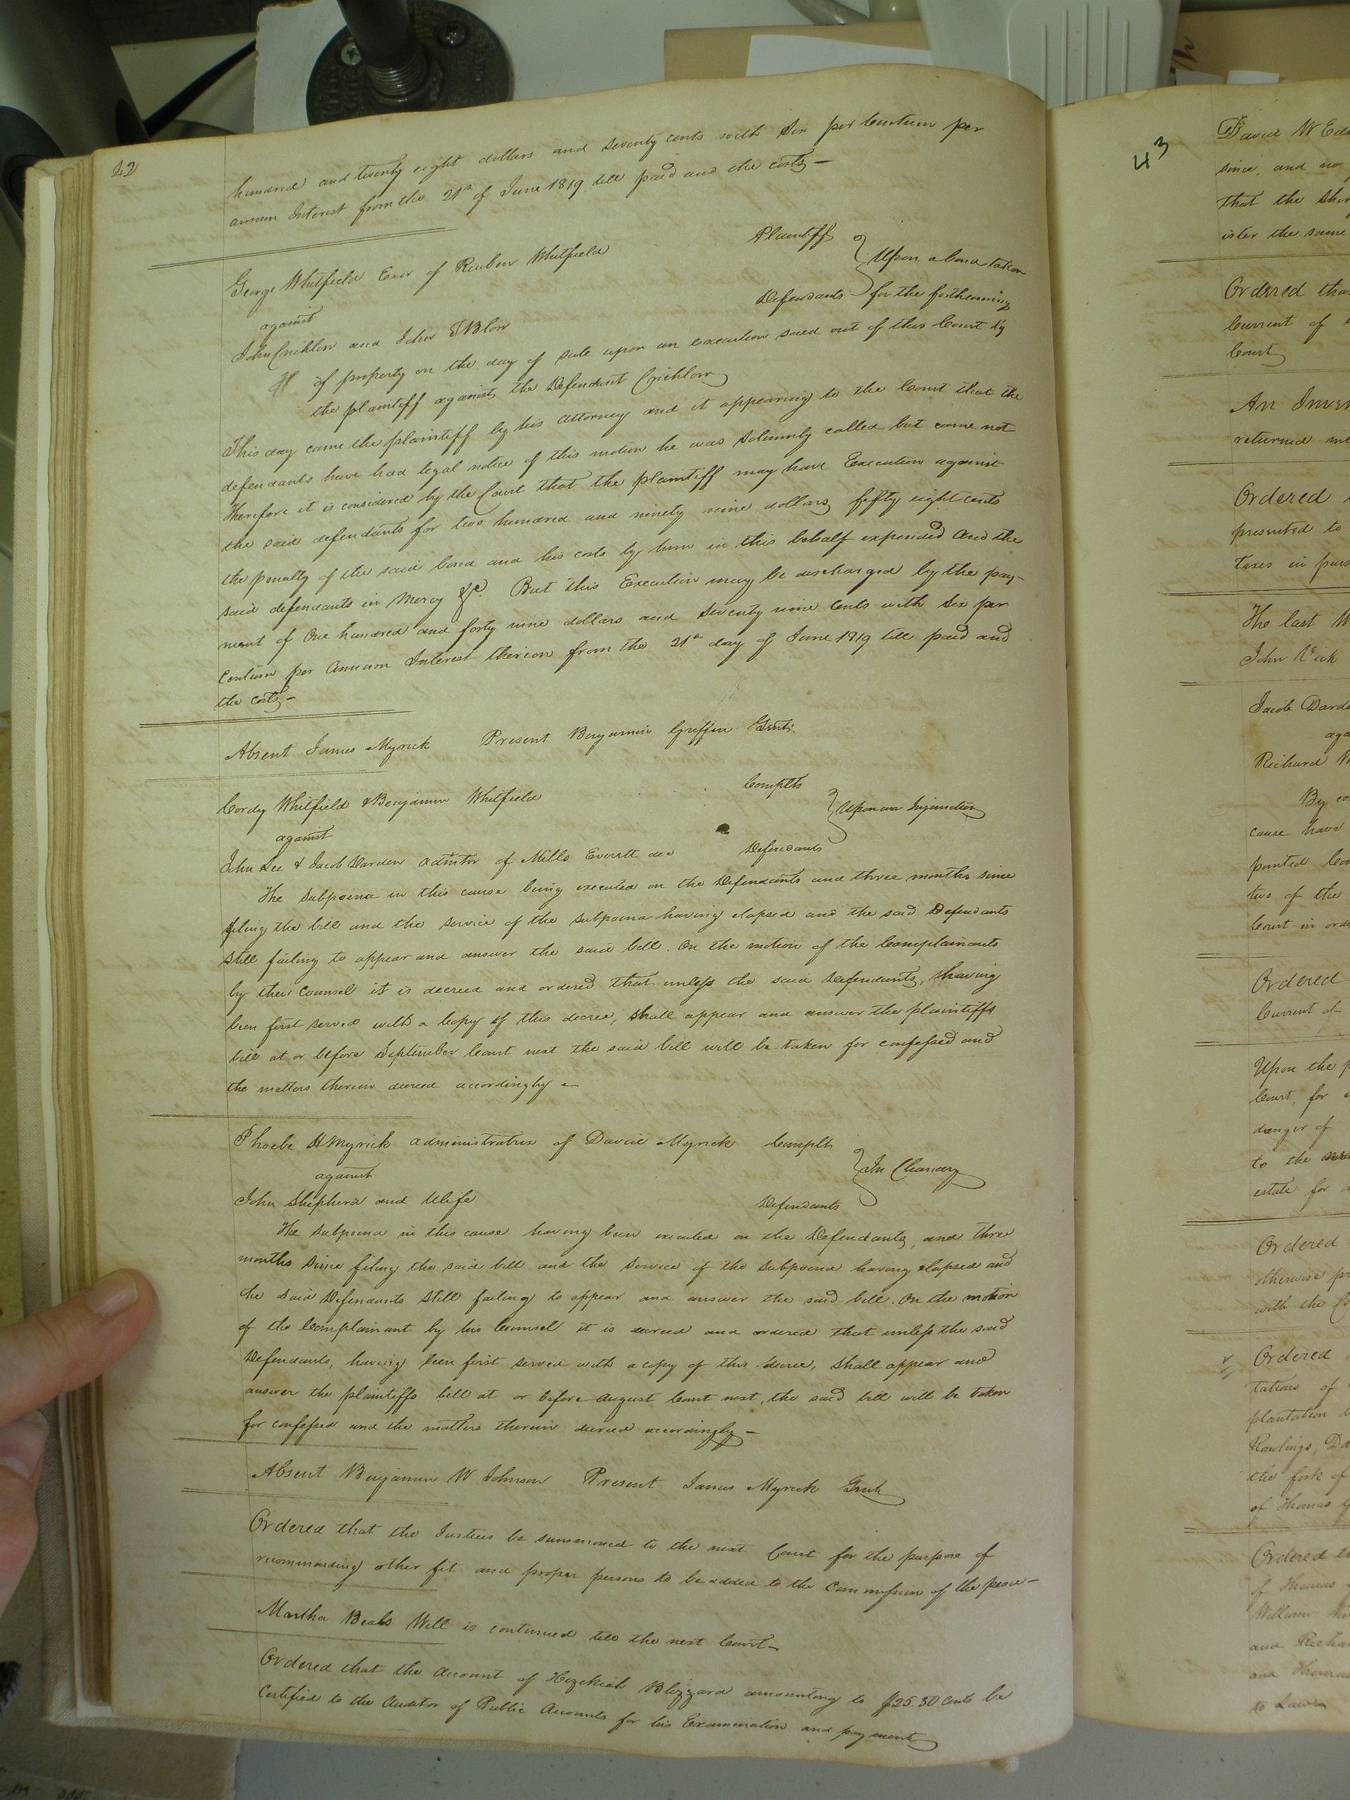 42
hundred and twenty eight dollars and seventy cents with Six per Centum per
annum Interest from the 21st of June 1819 till paid and the costs —
George Whitfield Exor of Reuben Whitfield Plaintiff
against
John Crichlow and John T Blow Defendants
Upon a bond taken
for the forthcoming
of property on the day of sale upon an execution sued out of this Court by
the plaintiff against the Defendant Crichlow
This day came the plaintiff by his attorney and it appearing to the Court that the
defendants have had legal notice of this motion he was Solemnly called but came not
Therefore it is considered by the Court that the plaintiff may have Execution against
the said defendants for two hundred and ninety nine dollars fifty eight cents
the penalty of the said bond and his costs by him in this behalf expended and the
said defendants in Mercy &c. But this Execution may be discharged by the pay-
ment of One hundred and forty nine dollars and Seventy nine Cents with Six per
centum per annum Interest thereon from the 21st day of June 1819 till paid and
the costs —
Absent James Myrick Present Benjamin Griffin Gent:
Cordy Whitfield & Benjamin Whitfield Complts
against
John Lee & Jacob Darden admstor of Mills Everett decd Defendants
Upon an Injunction
The Subpoena in this cause being executed on the Defendants and three months since
filing the bill and the service of the subpoena having elapsed and the said Defendants
still failing to appear and answer the said bill. On the motion of the Complainants
by their Counsel it is decreed and ordered that unless the said Defendants, having
been first served with a Copy of this decree, shall appear and answer the plaintiffs
bill at or before September Court next the said bill will be taken for confessed and
the matters therein decreed accordingly —
Phoebe H Myrick administratrix of David Myrick Complt
against
John Shepherd and Wife Defendants
In Chancery
The subpoena in this cause having been executed on the Defendants, and three
months since filing the said bill and the Service of the subpoena having elapsed and
the said Defendants still failing to appear and answer the said bill. On the motion
of the Complainant by his Counsel it is decreed and ordered that unless the said
Defendants, having been first served with a copy of this decree, shall appear and
answer the plaintiffs bill at or before August Court next, the said bill will be taken
for confessed and the matters therein decreed accordingly —
Absent Benjamin W Johnson Present James Myrick Gent
Ordered that the Justices be summoned to the next Court for the purpose of
recommending other fit and proper persons to be added to the Commission of the peace —
Martha Beals Will is continued till the next Court —
Ordered that the Account of Hezekiah Blizzard amounting to $25.30 Cents be
Certified to the Auditor of Public Accounts for his Examination and payment
43
David W
since, and no
that the
ister the same
Ordered that
Current of
Court
An
returned
Ordered
presented to
taxes in
The last
John
Jacob
Richard
By
cause have
pointed
two of the
Court in
Ordered
Current of
Upon the
Court, for
danger of
to the
estate for
Ordered
otherwise
with the
Ordered
tations of
plantation
Rawlings,
the fork of
of Thomas
Ordered
of Thomas
William
and
and Thomas
to Law